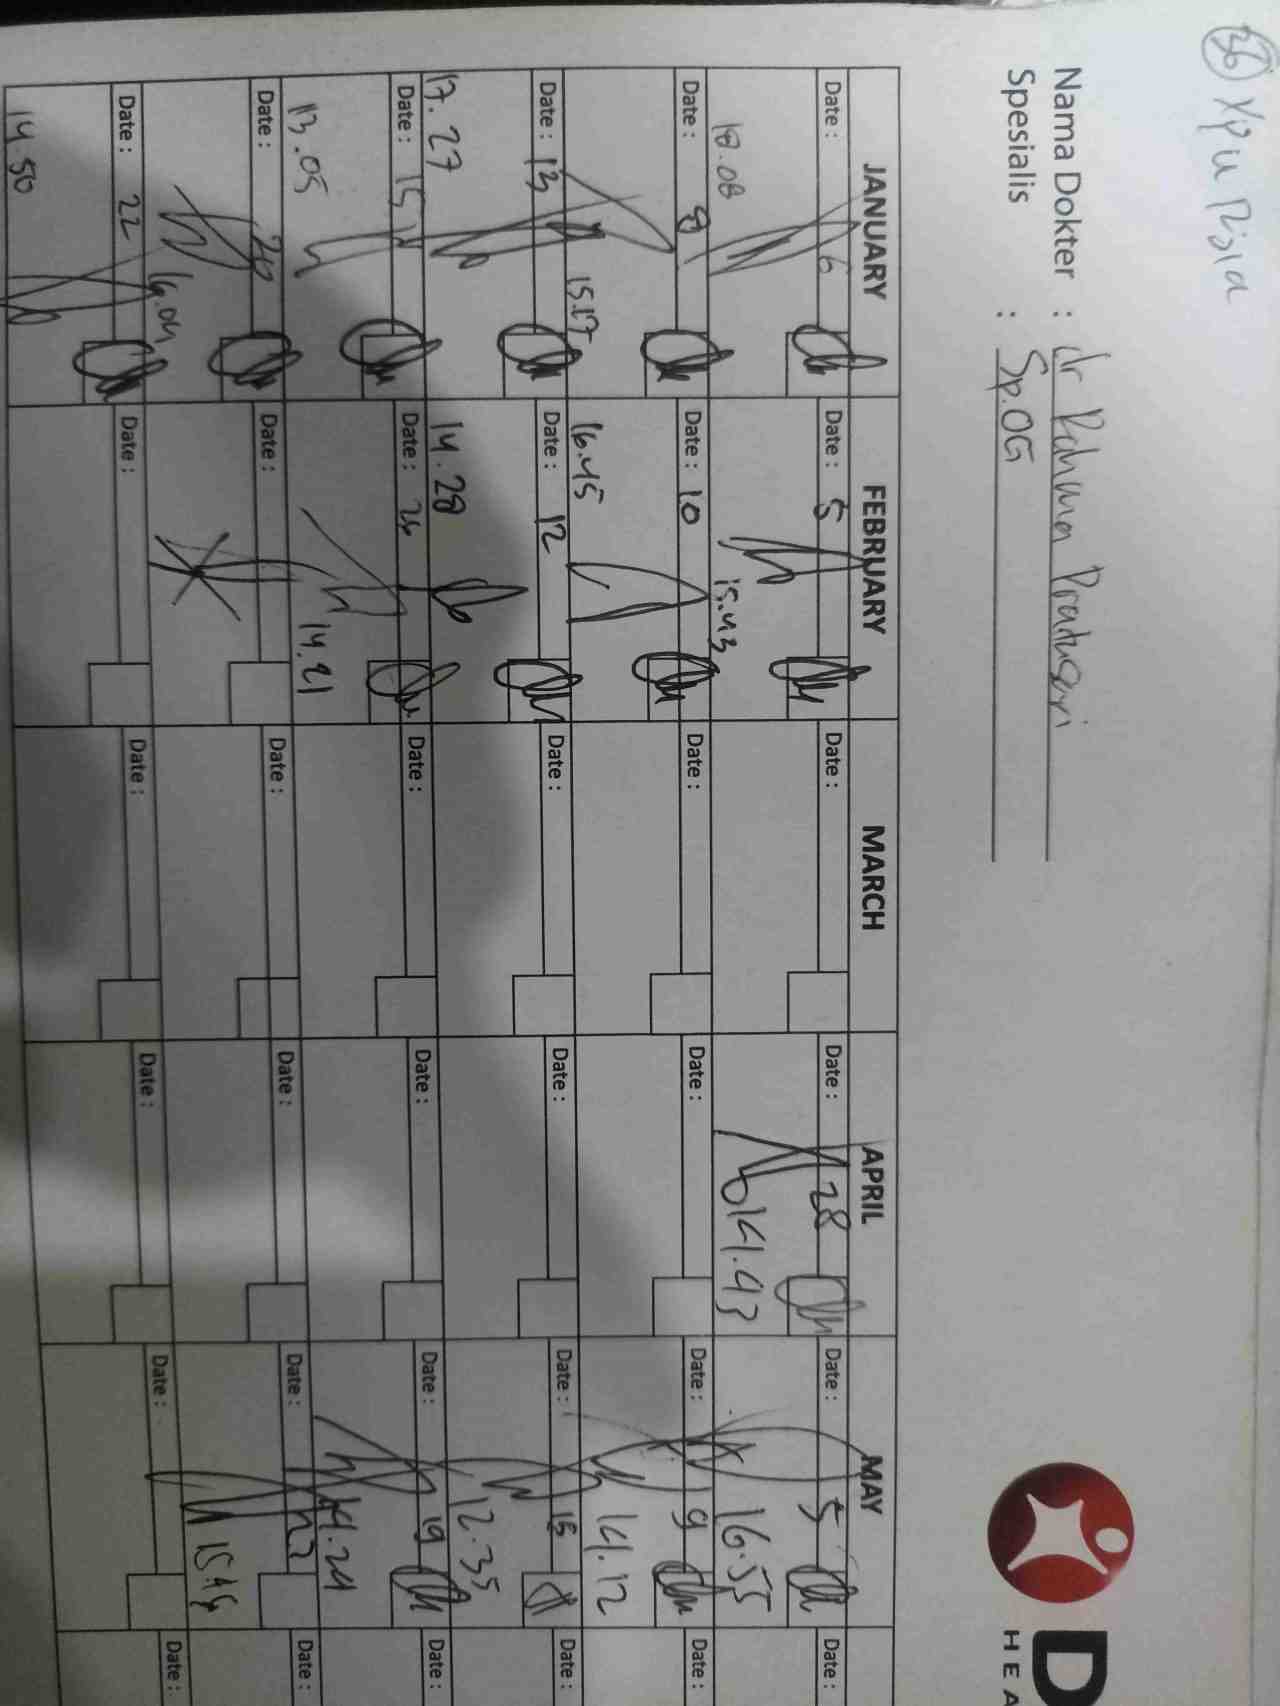 36
Nama Dokter : dr Rahma Pratusari
Spesialis : Sp.OG
D
HEA
JANUARY FEBRUARY MARCH APRIL MAY
Date : 6 Date : 5 Date : Date : 28 Date : 5 Date :
18.08 15.43 14.43 16.55
Date : 8 Date : 10 Date : Date : Date : 9 Date :
15.17 16.45 14.12
Date : 13 Date : 12 Date : Date : Date : 15 Date :
17.27 14.28 12.35
Date : 15 Date : 26 Date : Date : Date : 19 Date :
13.05 14.21 14.24
Date : 20 Date : Date : Date : Date : 22 Date :
16.04
Date : 22 Date : Date : Date : Date : Date :
14.50